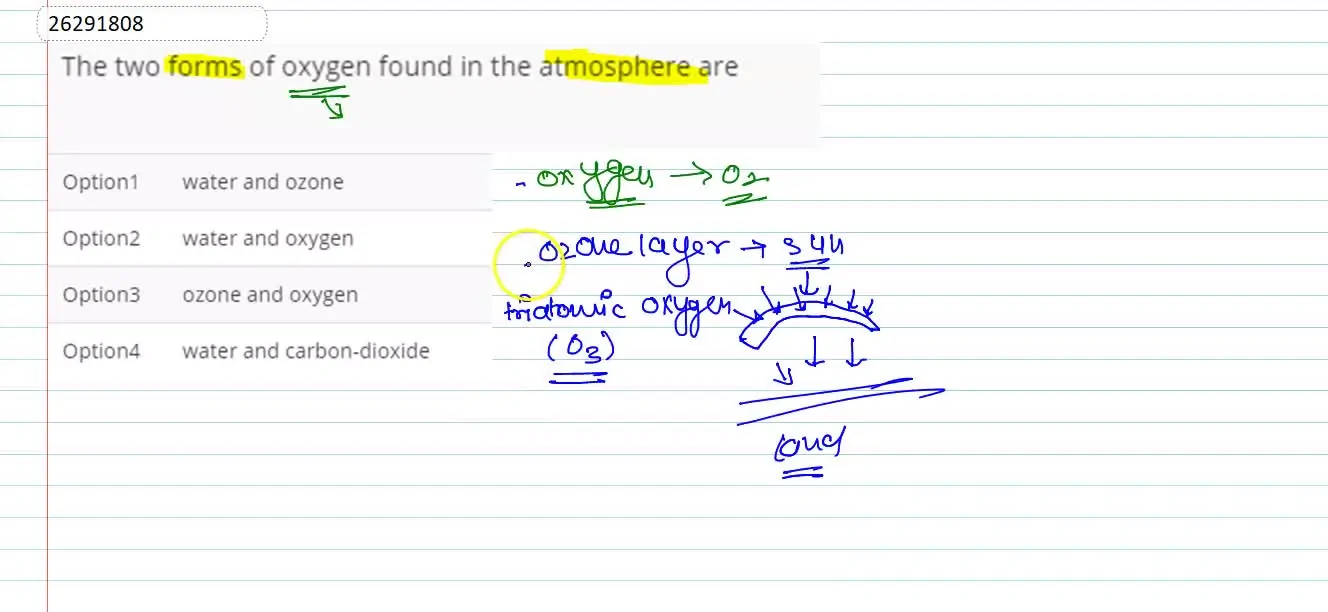 26291808
The two forms of oxygen found in the atmosphere are
Option1 water and ozone
Option2 water and oxygen
Option3 ozone and oxygen
Option4 water and carbon-dioxide
oxygen → O2
Ozone layer →
triatomic oxygen
(O3)
land